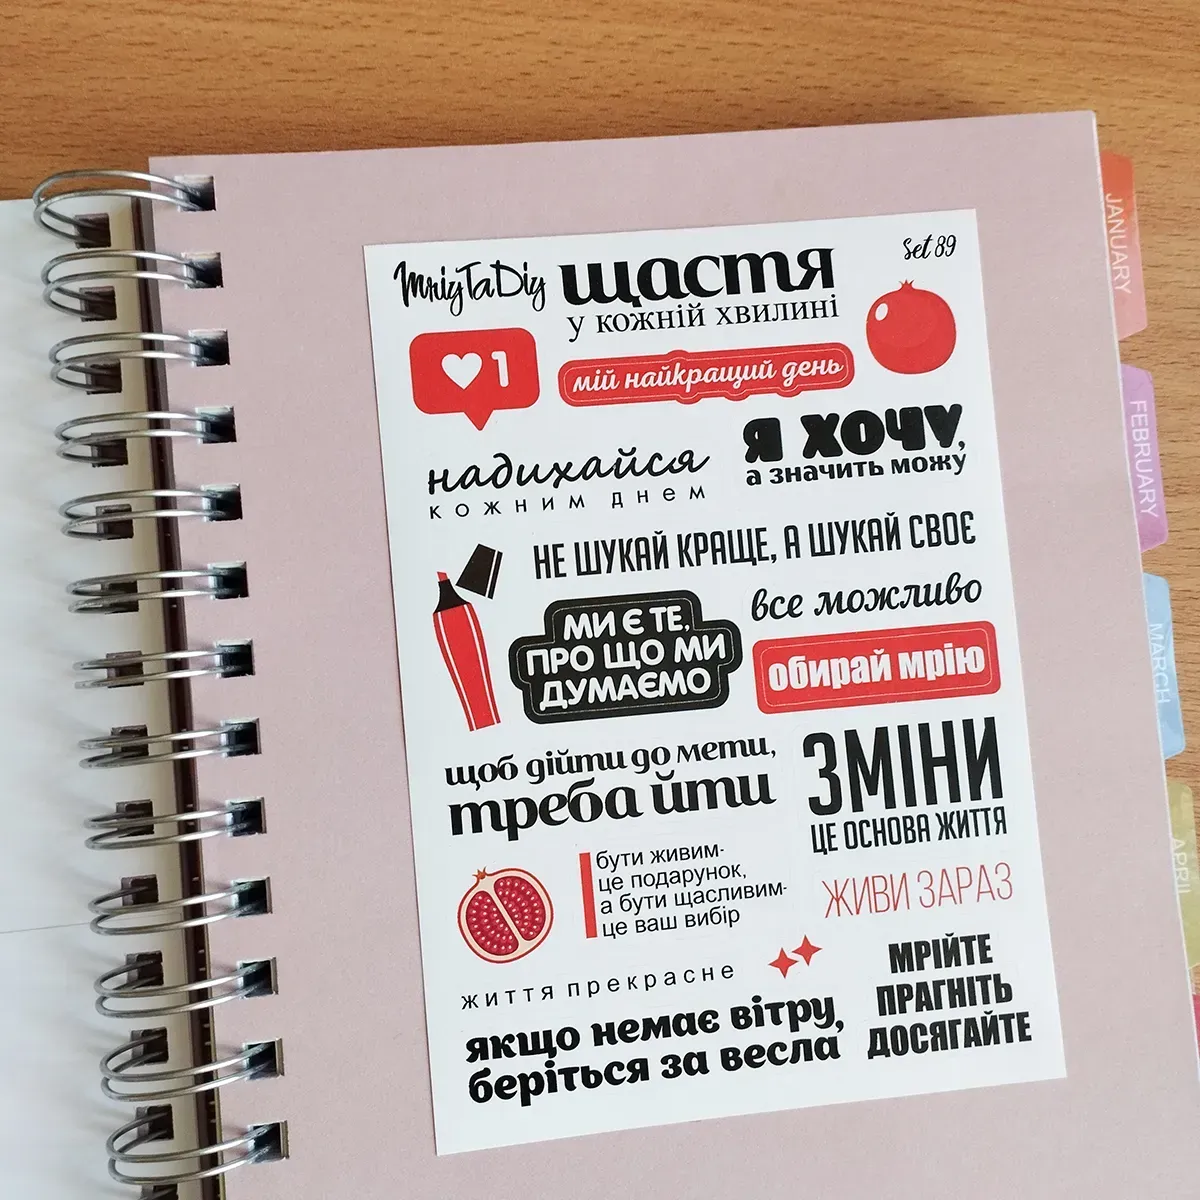 MriyTaDiy
щастя
у кожній хвилині
Set 89
1
мій найкращий день
надихайся
кожним днем
Я ХОЧУ,
а значить можу
НЕ ШУКАЙ КРАЩЕ, А ШУКАЙ СВОЄ
все можливо
МИ Є ТЕ,
ПРО ЩО МИ
ДУМАЄМО
обирай мрію
щоб дійти до мети,
треба йти
ЗМІНИ
ЦЕ ОСНОВА ЖИТТЯ
бути живим-
це подарунок,
а бути щасливим-
це ваш вибір
ЖИВИ ЗАРАЗ
життя прекрасне
якщо немає вітру,
беріться за весла
МРІЙТЕ
ПРАГНІТЬ
ДОСЯГАЙТЕ
JANUARY
FEBRUARY
MARCH
APRIL